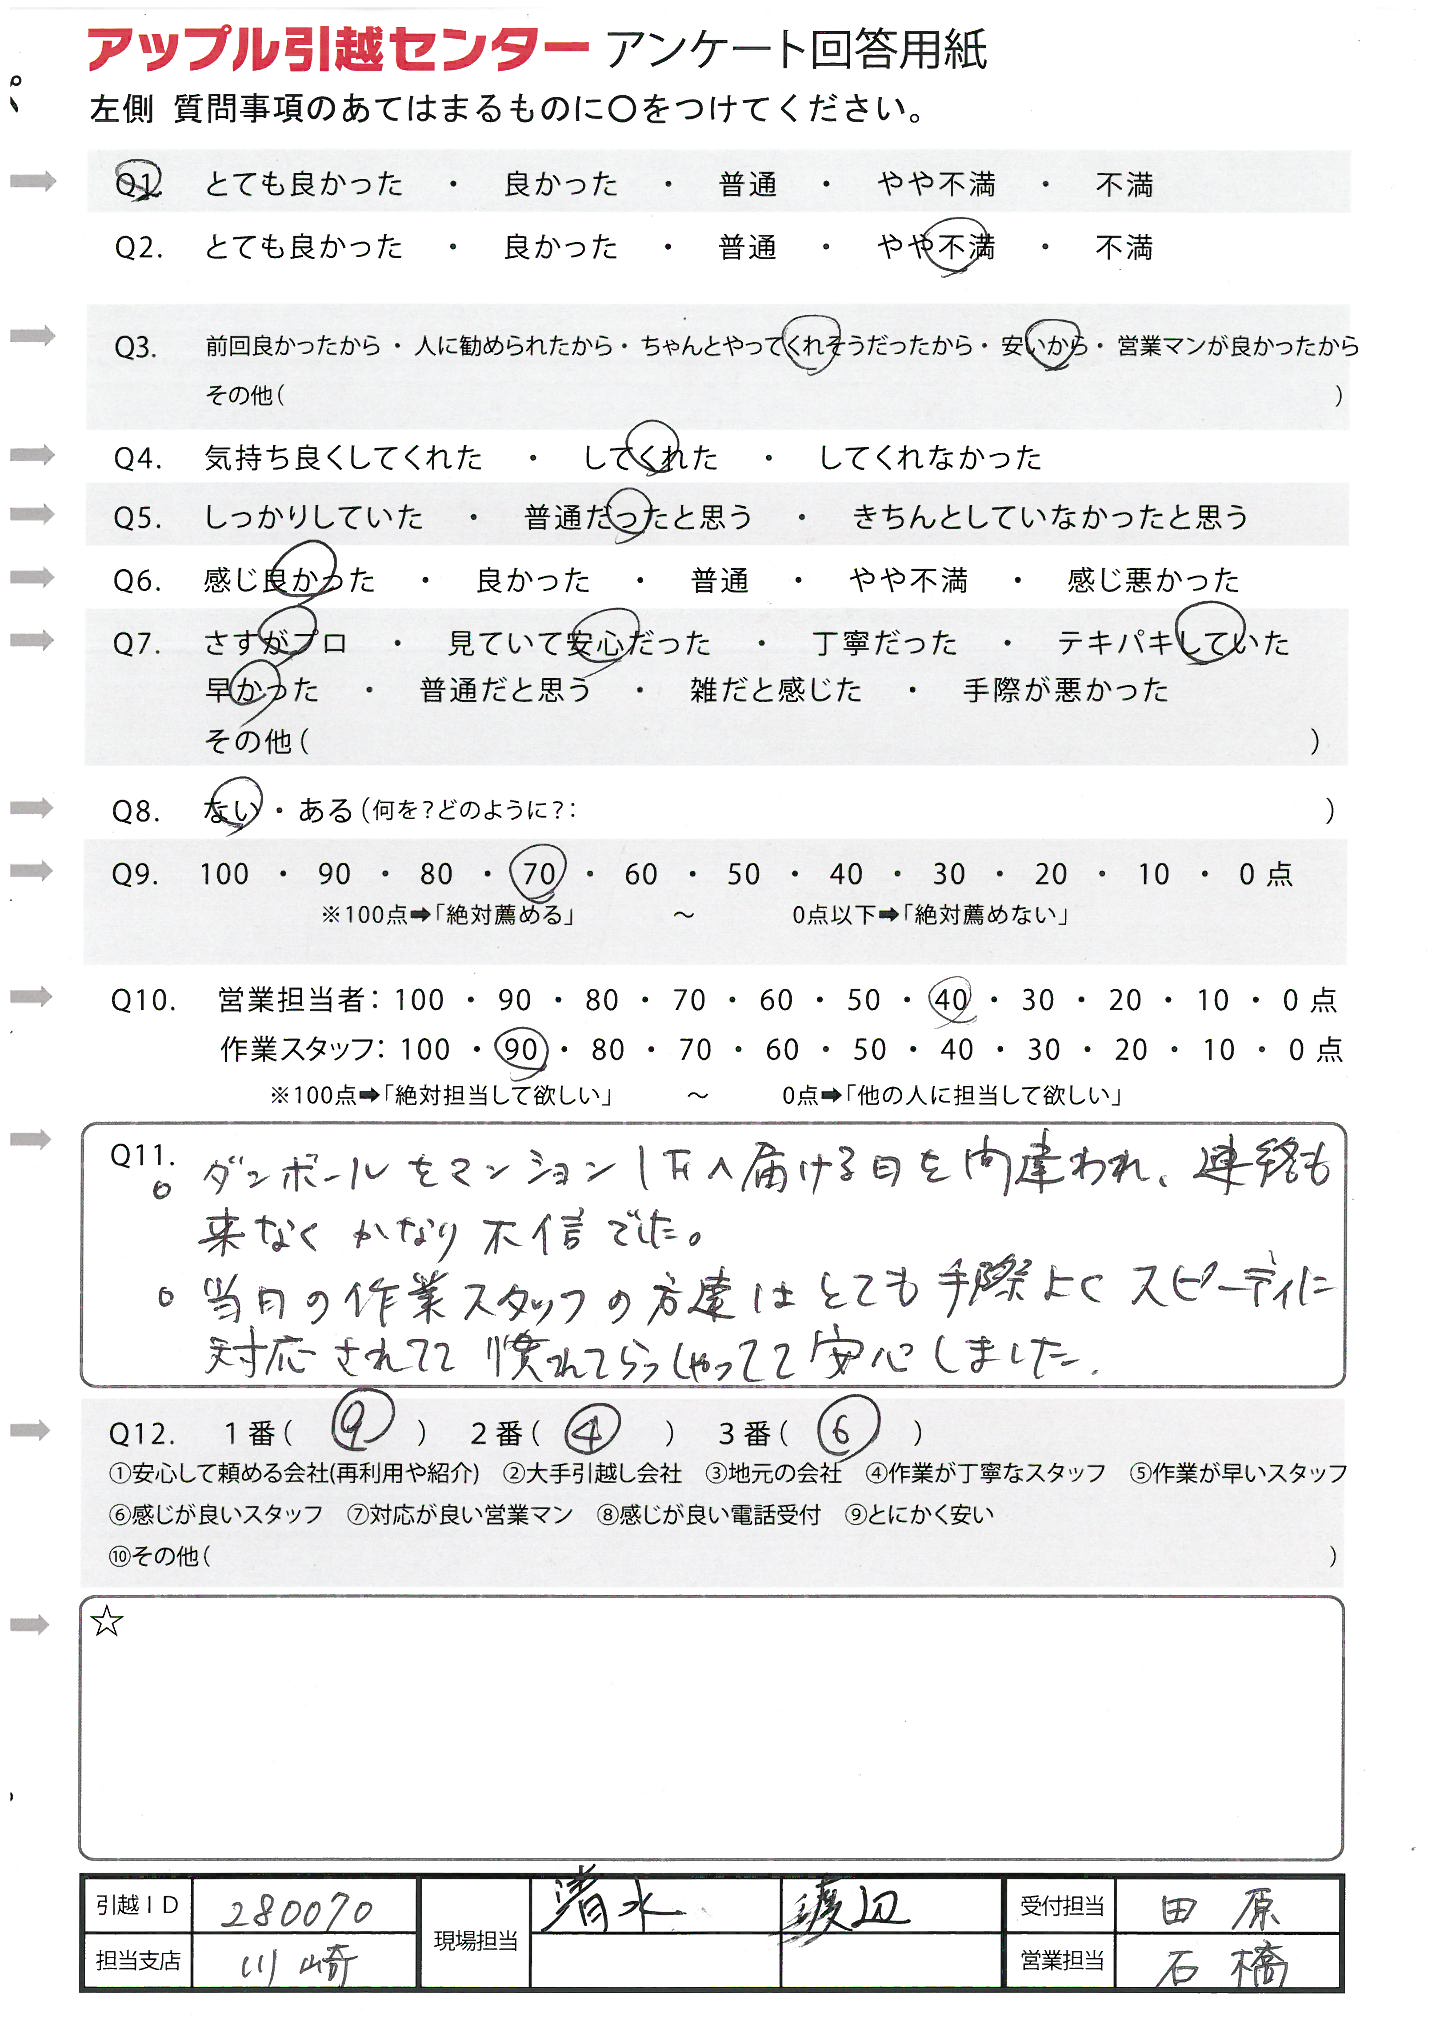 アップル引越センター アンケート回答用紙
左側 質問事項のあてはまるものに〇をつけてください。
Q1. とても良かった ・ 良かった ・ 普通 ・ やや不満 ・ 不満
Q2. とても良かった ・ 良かった ・ 普通 ・ やや不満 ・ 不満
Q3. 前回良かったから ・ 人に勧められたから ・ ちゃんとやってくれそうだったから ・ 安いから ・ 営業マンが良かったから
その他( )
Q4. 気持ち良くしてくれた ・ してくれた ・ してくれなかった
Q5. しっかりしていた ・ 普通だったと思う ・ きちんとしていなかったと思う
Q6. 感じ良かった ・ 良かった ・ 普通 ・ やや不満 ・ 感じ悪かった
Q7. さすがプロ ・ 見ていて安心だった ・ 丁寧だった ・ テキパキしていた
早かった ・ 普通だと思う ・ 雑だと感じた ・ 手際が悪かった
その他( )
Q8. ない ・ ある(何を?どのように?: )
Q9. 100 ・ 90 ・ 80 ・ 70 ・ 60 ・ 50 ・ 40 ・ 30 ・ 20 ・ 10 ・ 0 点
※100点➡「絶対薦める」 ～ 0点以下➡「絶対薦めない」
Q10. 営業担当者: 100 ・ 90 ・ 80 ・ 70 ・ 60 ・ 50 ・ 40 ・ 30 ・ 20 ・ 10 ・ 0 点
作業スタッフ: 100 ・ 90 ・ 80 ・ 70 ・ 60 ・ 50 ・ 40 ・ 30 ・ 20 ・ 10 ・ 0 点
※100点➡「絶対担当して欲しい」 ～ 0点➡「他の人に担当して欲しい」
Q11. 。ダンボールをマンション1Fへ届ける日を間違われ、連絡も
来なくかなり不信でした。
。当日の作業スタッフの方達はとても手際よくスピーディに
対応されてて慣れてらっしゃってて安心しました.
Q12. 1番( ⑨ ) 2番( ④ ) 3番( ⑥ )
①安心して頼める会社(再利用や紹介) ②大手引越し会社 ③地元の会社 ④作業が丁寧なスタッフ ⑤作業が早いスタッフ
⑥感じが良いスタッフ ⑦対応が良い営業マン ⑧感じが良い電話受付 ⑨とにかく安い
⑩その他( )
☆
引越ID 280070 現場担当 清水 渡辺 受付担当 田原
担当支店 川崎 営業担当 石橋